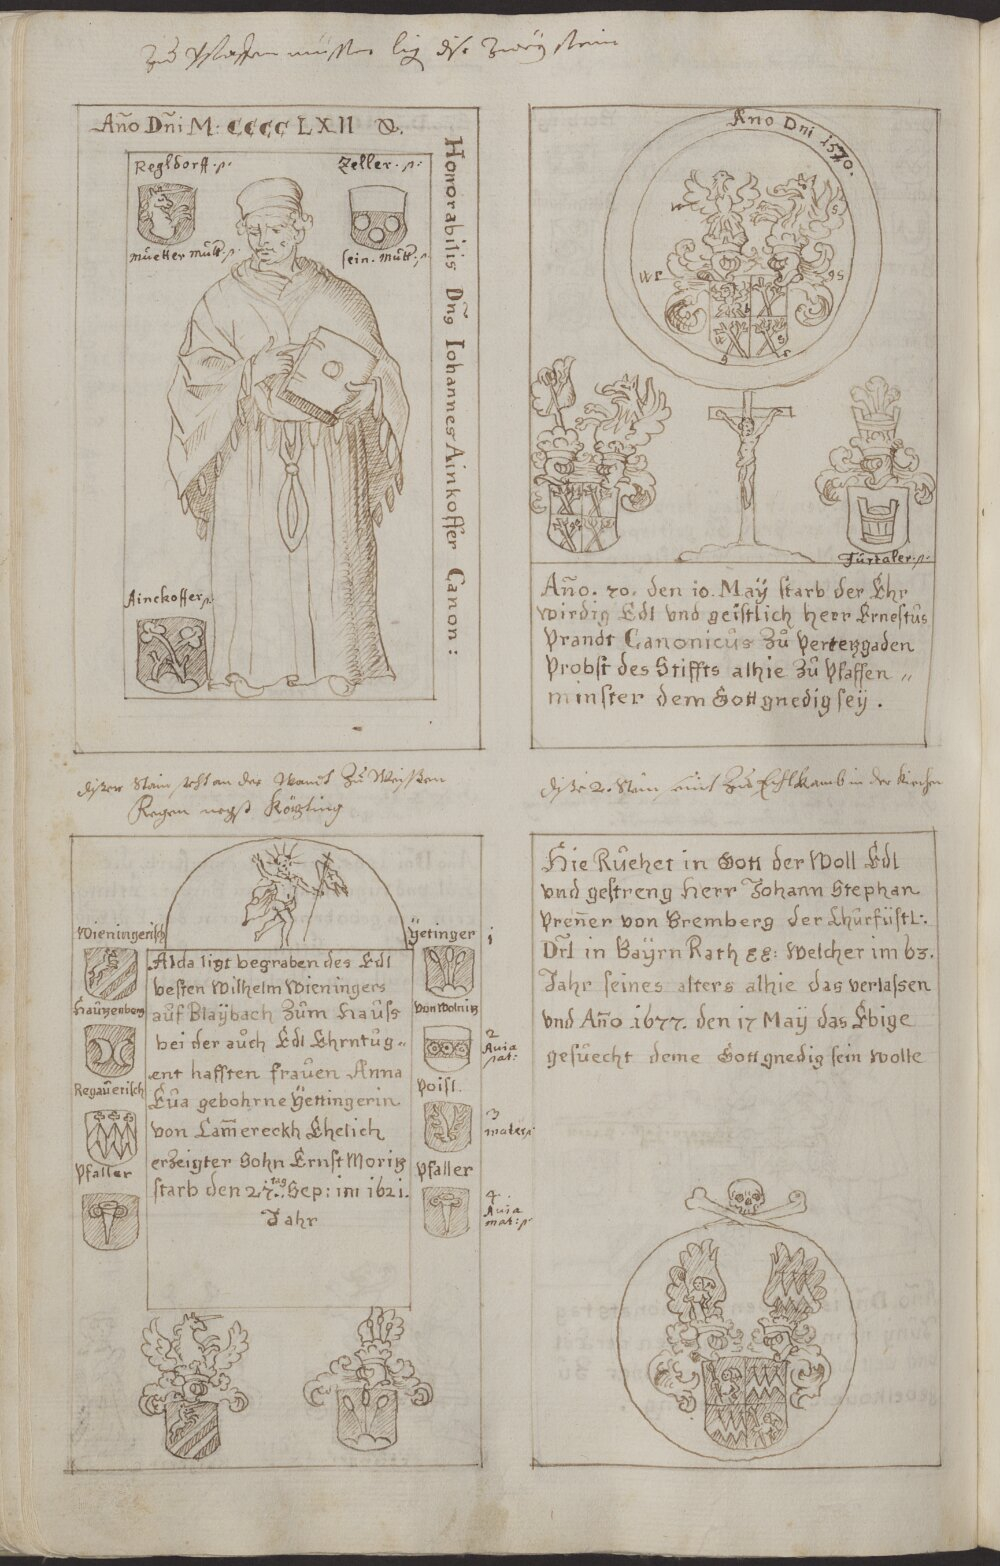 Zu Pfaffenmünster lig dise zweÿ stein
Año Dñi M: CCCC LXII &.
Regldorff.
Zeller.
müetter mütt:
sein. mütt:
Honorabilis Dñs Iohannes Ainkoffer Canon:
Ainckoffer
Ano Dni 1570.
W
g
s
Wr
gs
w
g
g
r
Fürtaler.
Año. 70. den 10. Maÿ starb der Ehr
wirdig Edl vnd geistlich herr Ernestus
Prandt Canonicus Zu Perterzgaden
Probst des Stiffts alhie Zu Pfaffen„
minster dem Gott gnedig seÿ.
diser Stain ist an der Wandt Zu Weissen
Regen negst Közting
dise 2. Stein sint Zu Eschlkamb in der Kirchen
Wieningerisch
Hauzenberg
Regauerisch
Pfaller
Alda ligt begraben des Edl
vesten Wilhelm Wieningers
auf Blaÿbach Zum hauss
bei der auch Edl Ehrntug„
ent hafften frauen Anna
Eua gebohrne Ÿettingerin
von Lam̃ereckh Ehelich
erzeigter Sohn Ernst Moritz
starb den 27.tag Sep: im 1621.
Jahr
Ÿetinger
1
von Wolnig
2
Auia
pat:
Poisl.
3
mater
Pfaller
4.
Auia
mat:
Hie Ruehet in Gott der Woll Edl
vnd gestreng herr Johann Stephan
Preñer von Bremberg der Churfüstl:
Drl in Baÿrn Rath &&: Welcher im 63.
Jahr seines alters alhie das verlassen
vnd Año 1677. den 17 Maÿ das Ebige
gesuecht deme Gott gnedig sein wolle